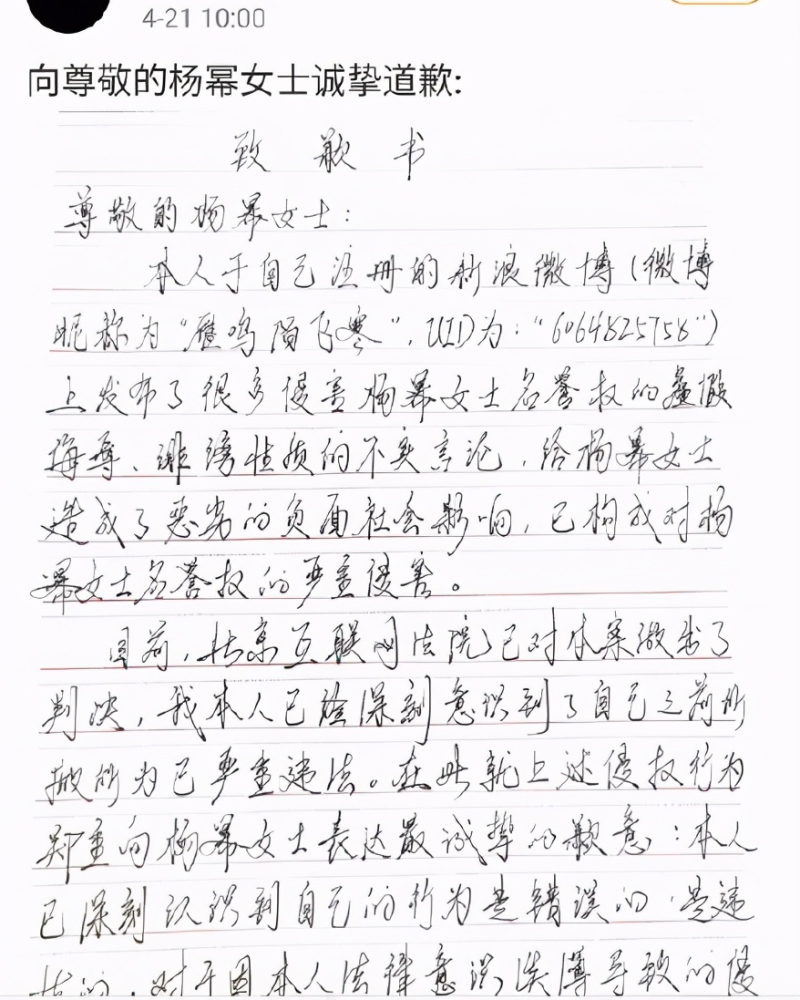 4-21 10:00
向尊敬的杨幂女士诚挚道歉:
致歉书
尊敬的杨幂女士:
本人于自己注册的新浪微博(微博
昵称为"雁鸣陌飞寒",UID为:"6064825758")
上发布了很多侵害杨幂女士名誉权的
侮辱、诽谤性质的不实言论,给杨幂女士
造成了恶劣的负面社会影响,已构成对杨
幂女士名誉权的严重侵害。
目前,北京互联网法院已对本案做出了
判决,我本人已经深刻意识到了自己之前所
做所为已严重违法。在此就上述侵权行为
郑重向杨幂女士表达最诚挚的歉意:本人
已深刻认识到自己的行为是错误的,是违
法的,对于因本人法律意识淡薄导致的侵